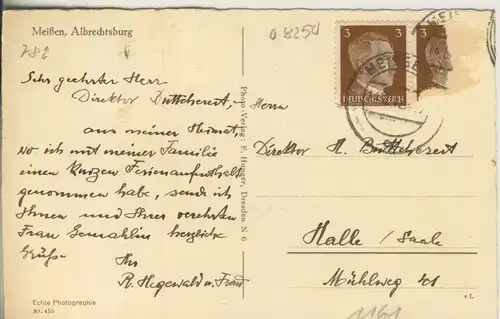 Meißen, Albrechtsburg
782
08250
3
3
DEUTSCHES REICH
Sehr geehrter Herr
Direktor Büttehorst,
aus meiner Heimat,
wo ich mit meiner Familie
einen kurzen Ferienaufenthalt
genommen habe, sende ich
Ihnen und Ihrer verehrten
Frau Gemahlin herzliche
Grüße
Ihr
R. Hegewald u. Frau
Photo-Verlag: F. Hugger, Dresden N 6
Herrn
Direktor H.
Halle / Saale
Mühlweg 41
Echte Photographie
Nr. 455